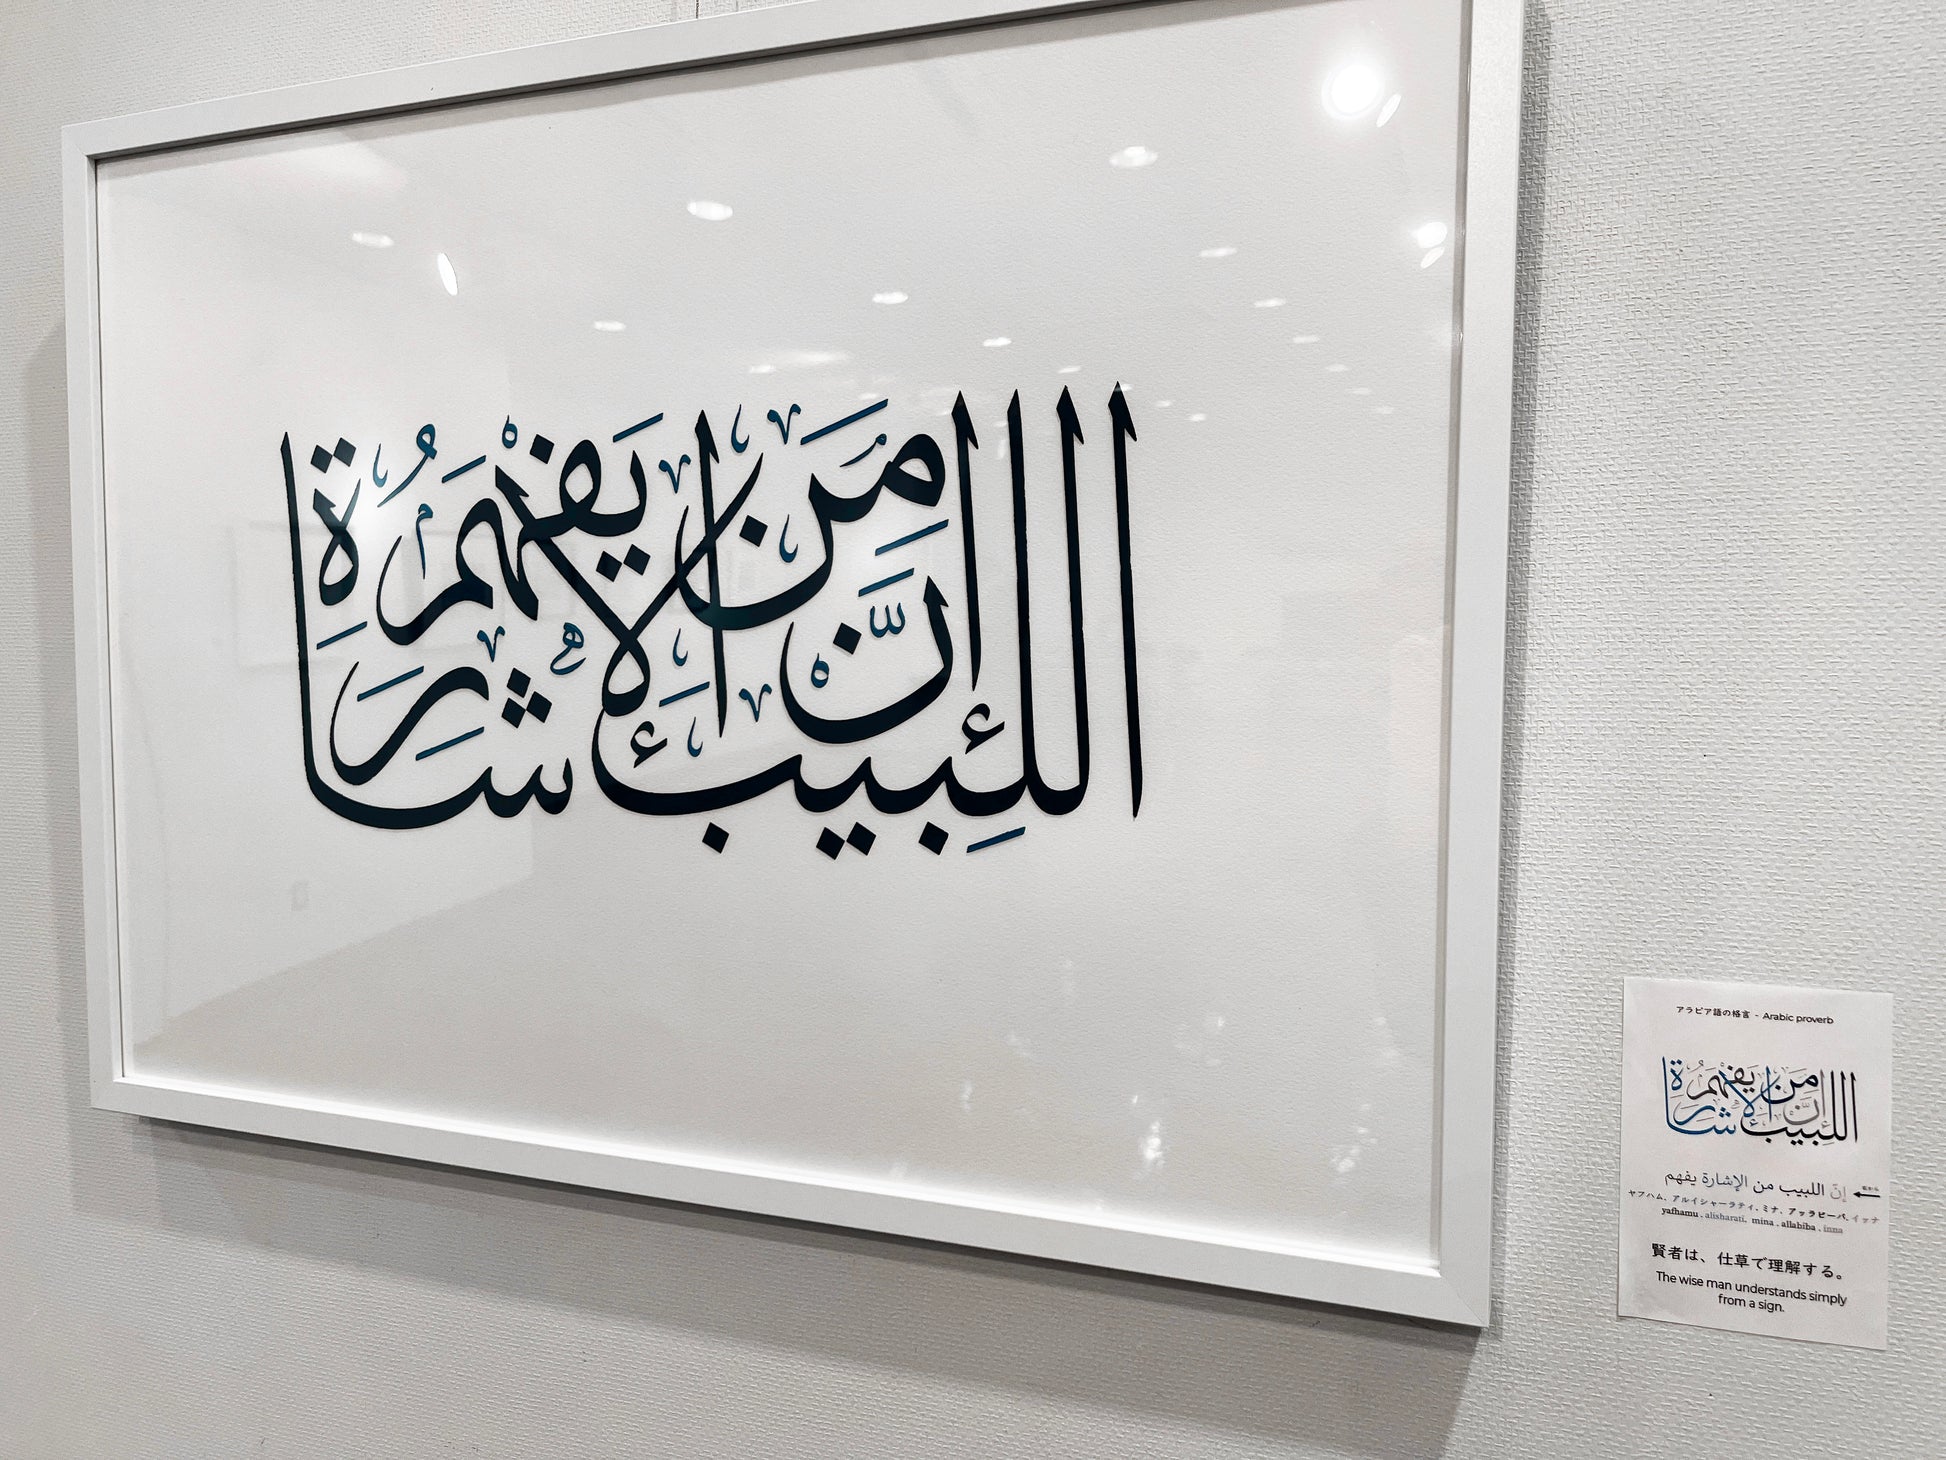 إنَّ اللبيب من الإشارة يفهم
アラビア語の格言 - Arabic proverb
إنَّ اللبيب من الإشارة يفهم
إنّ اللبيب من الإشارة يفهم
ヤフハム、アルイシャーラティ、ミナ、アッラビーバ、インナ
yafhamu , alisharati, mina , allabiba , inna
賢者は、仕草で理解する。
The wise man understands simply
from a sign.